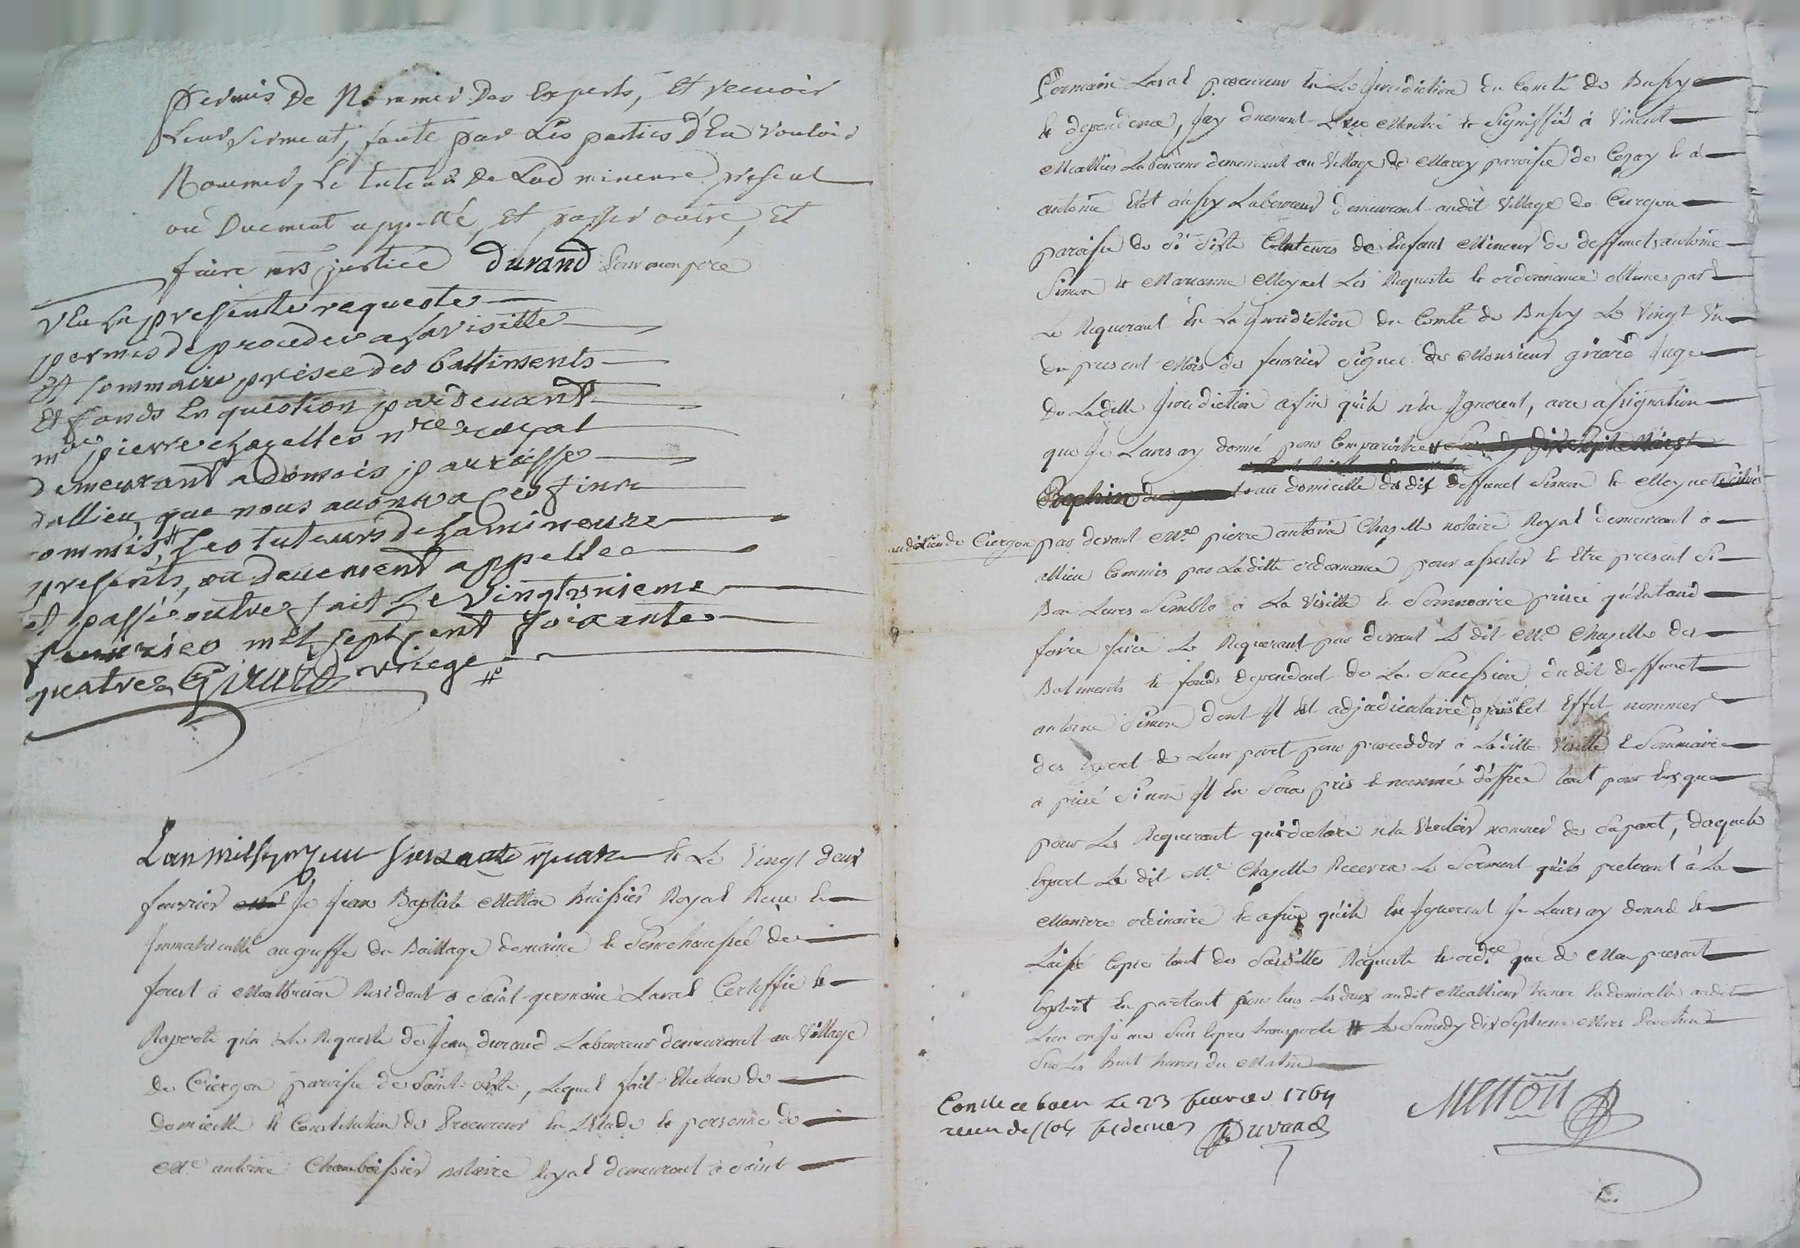 permis de Nommer des experts, et recevoir
Leur serment, faute par Les parties d'En vouloir
Nommer, Le tuteur de Lad mineure present
ou Duement appellé, et passer outre, Et
faire ares justice Durand pour mon pere
Veu La presente requeste
permis de proceder a La visitte
et sommaire prisée des battiments
Et fonds En question pardevant
me pierre chazelles nre royal
demeurant a domois parroisse
dallieu que nous avons a ces fins
commis, Les tuteurs de La mineure
presents, ou deuement appellee
et passé outre fait Le vingt unieme
feuvrier mil sept cent soixante
quatre Girard vi juge
Lan mil sept cent soixante quatre & Le Vingt deux
fevrier Je Jean Baptiste Metton huissier Royal Receu &
Immatriculle au greffe du Baillage domaine & Senechaussée de
forest a Montbrison Residant a Saint germain Laval Certiffie &
Raporte qua La Requeste de Jean durand Laboureur demeurant au Village
de Ciergon paroisse de Saint Sixte, Lequel fait Election de
domicille & Constitution de Procureur En Létude & personne de
Me antoine Chamboissier notaire Royal demeurant a Saint
Germain Laval procureur En La Juridiction du Comté de Bussy
& dependence, Jay duement Leu Montré & Signiffié à Vincent
Mathieu Laboureur demeurant au Village de Marcy paroisse de Cezay & à
antoine Etot aussy Laboureur demeurant audit Village de Curgon
paroisse de St Sixte tuteurs de Lenfant Mineur de deffunct antoine
Simon & Marianne Meynet Les Requeste & ordonnance obtenue par
Le Requerant En La Juridiction du Comté de Bussy Le Vingt Un
du present Mois de fevrier Signée de Monsieur girard Juge
de Laditte Juridiction afin quils nen Ignorent, avec assignation
que Je Leurs ay donné pour Comparoitre
Prochin au domicille du dit deffunct Simon & Meynet
audit lieu de Ciergon par devant Me pierre antoine Chazelle notaire Royal demeurant a
allieu Commis par Laditte ordonnance pour assister & Etre present Si
Bon Leurs Semble a La Visitte & Sommaire prisée quil entend
faire faire Le Requerant par devant Le dit Me Chazelle des
Batiments & fonds dependant de La Succession dudit deffunct
antoine Simon dont Il Est adjudicataire, & pour Cet Effet nommer
des Expert de Leur part pour proceder a Laditte Visitte & Sommaire
a prisé Sinon Il En Sera pris & nommé doffice tant pour Eux que
pour Le Requerant qui declare nen Vouloir nommer de Sa part, desquels
Expert Le dit Me Chazelle Recevra Le Serment quils preteront à La
Maniere ordinaire & afin quils nen Ignorent Je Leurs ay donné &
Laissé Copie tant des Susdittes Requeste & ordce que de Mon present
Exploit En parlant pour tous Les deux audit Mathieu trouvé En domicille audit
Lieu ou Je me Suis Expres transporté & Le Samedy dix Septieme Mars Prochain
Sur Les huit heures du Matin
Metton
Conlle a boen Le 23 fevrier 1764
receu dix sols six deniers Duvand